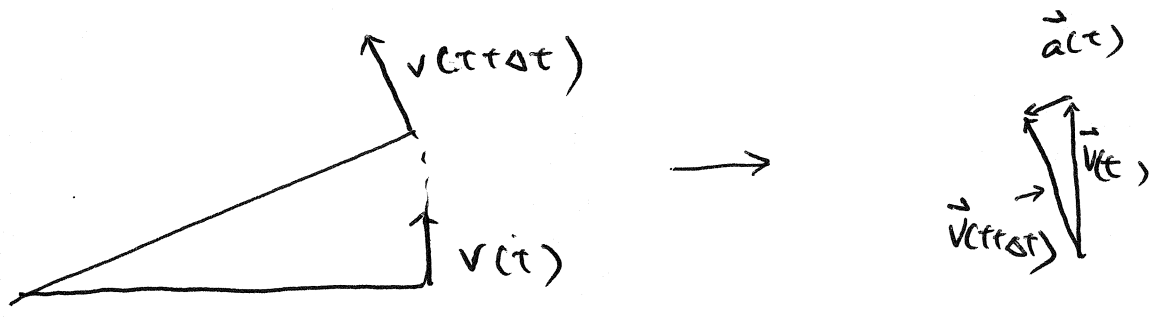 v(t+Δt)
v(t)
a⃗(t)
v⃗(t)
v⃗(t+Δt)